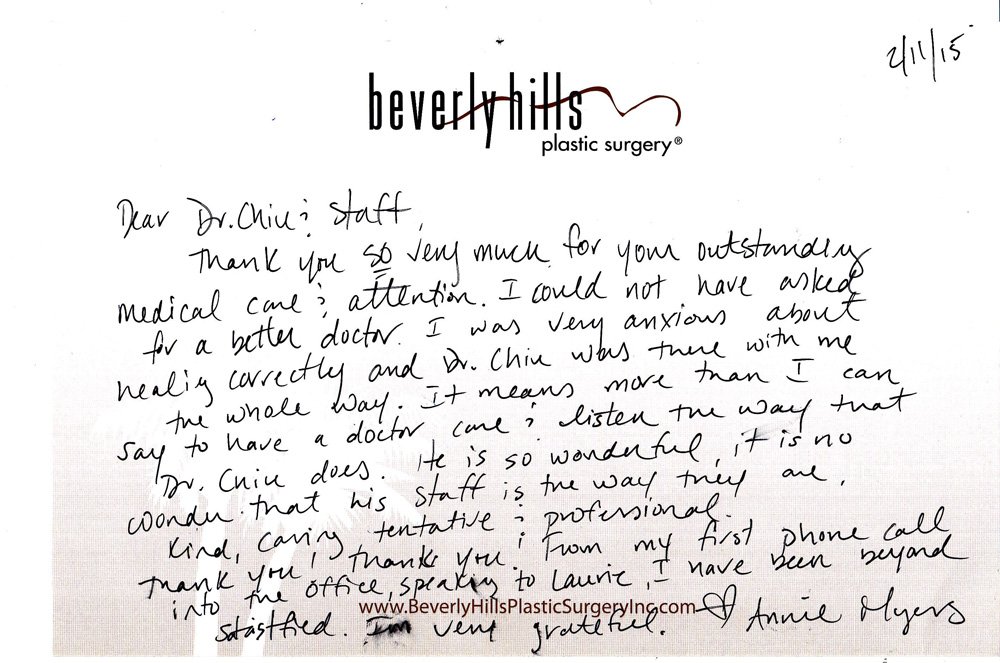 2/11/15
beverly hills
plastic surgery®
Dear Dr. Chiu & Staff,
Thank you so very much for your outstanding
medical care & attention. I could not have asked
for a better doctor. I was very anxious about
healing correctly and Dr. Chiu was there with me
the whole way. It means more than I can
say to have a doctor care & listen the way that
Dr. Chiu does. He is so wonderful, it is no
wonder that his staff is the way they are,
kind, caring tentative & professional.
Thank you, thank you! From my first phone call
into the office, speaking to Laurie, I have been beyond
satistfied. I'm very grateful. ♡ Annie Myers
www.BeverlyHillsPlasticSurgeryInc.com